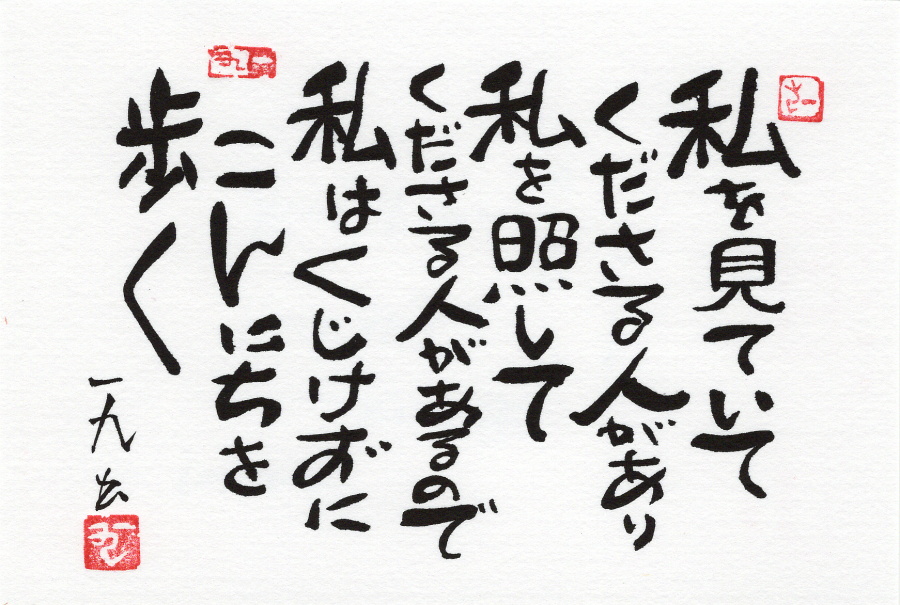 私を見ていて
くださる人があり
私を照して
くださる人があるので
私はくじけずに
こんにちを
歩く
一九 出